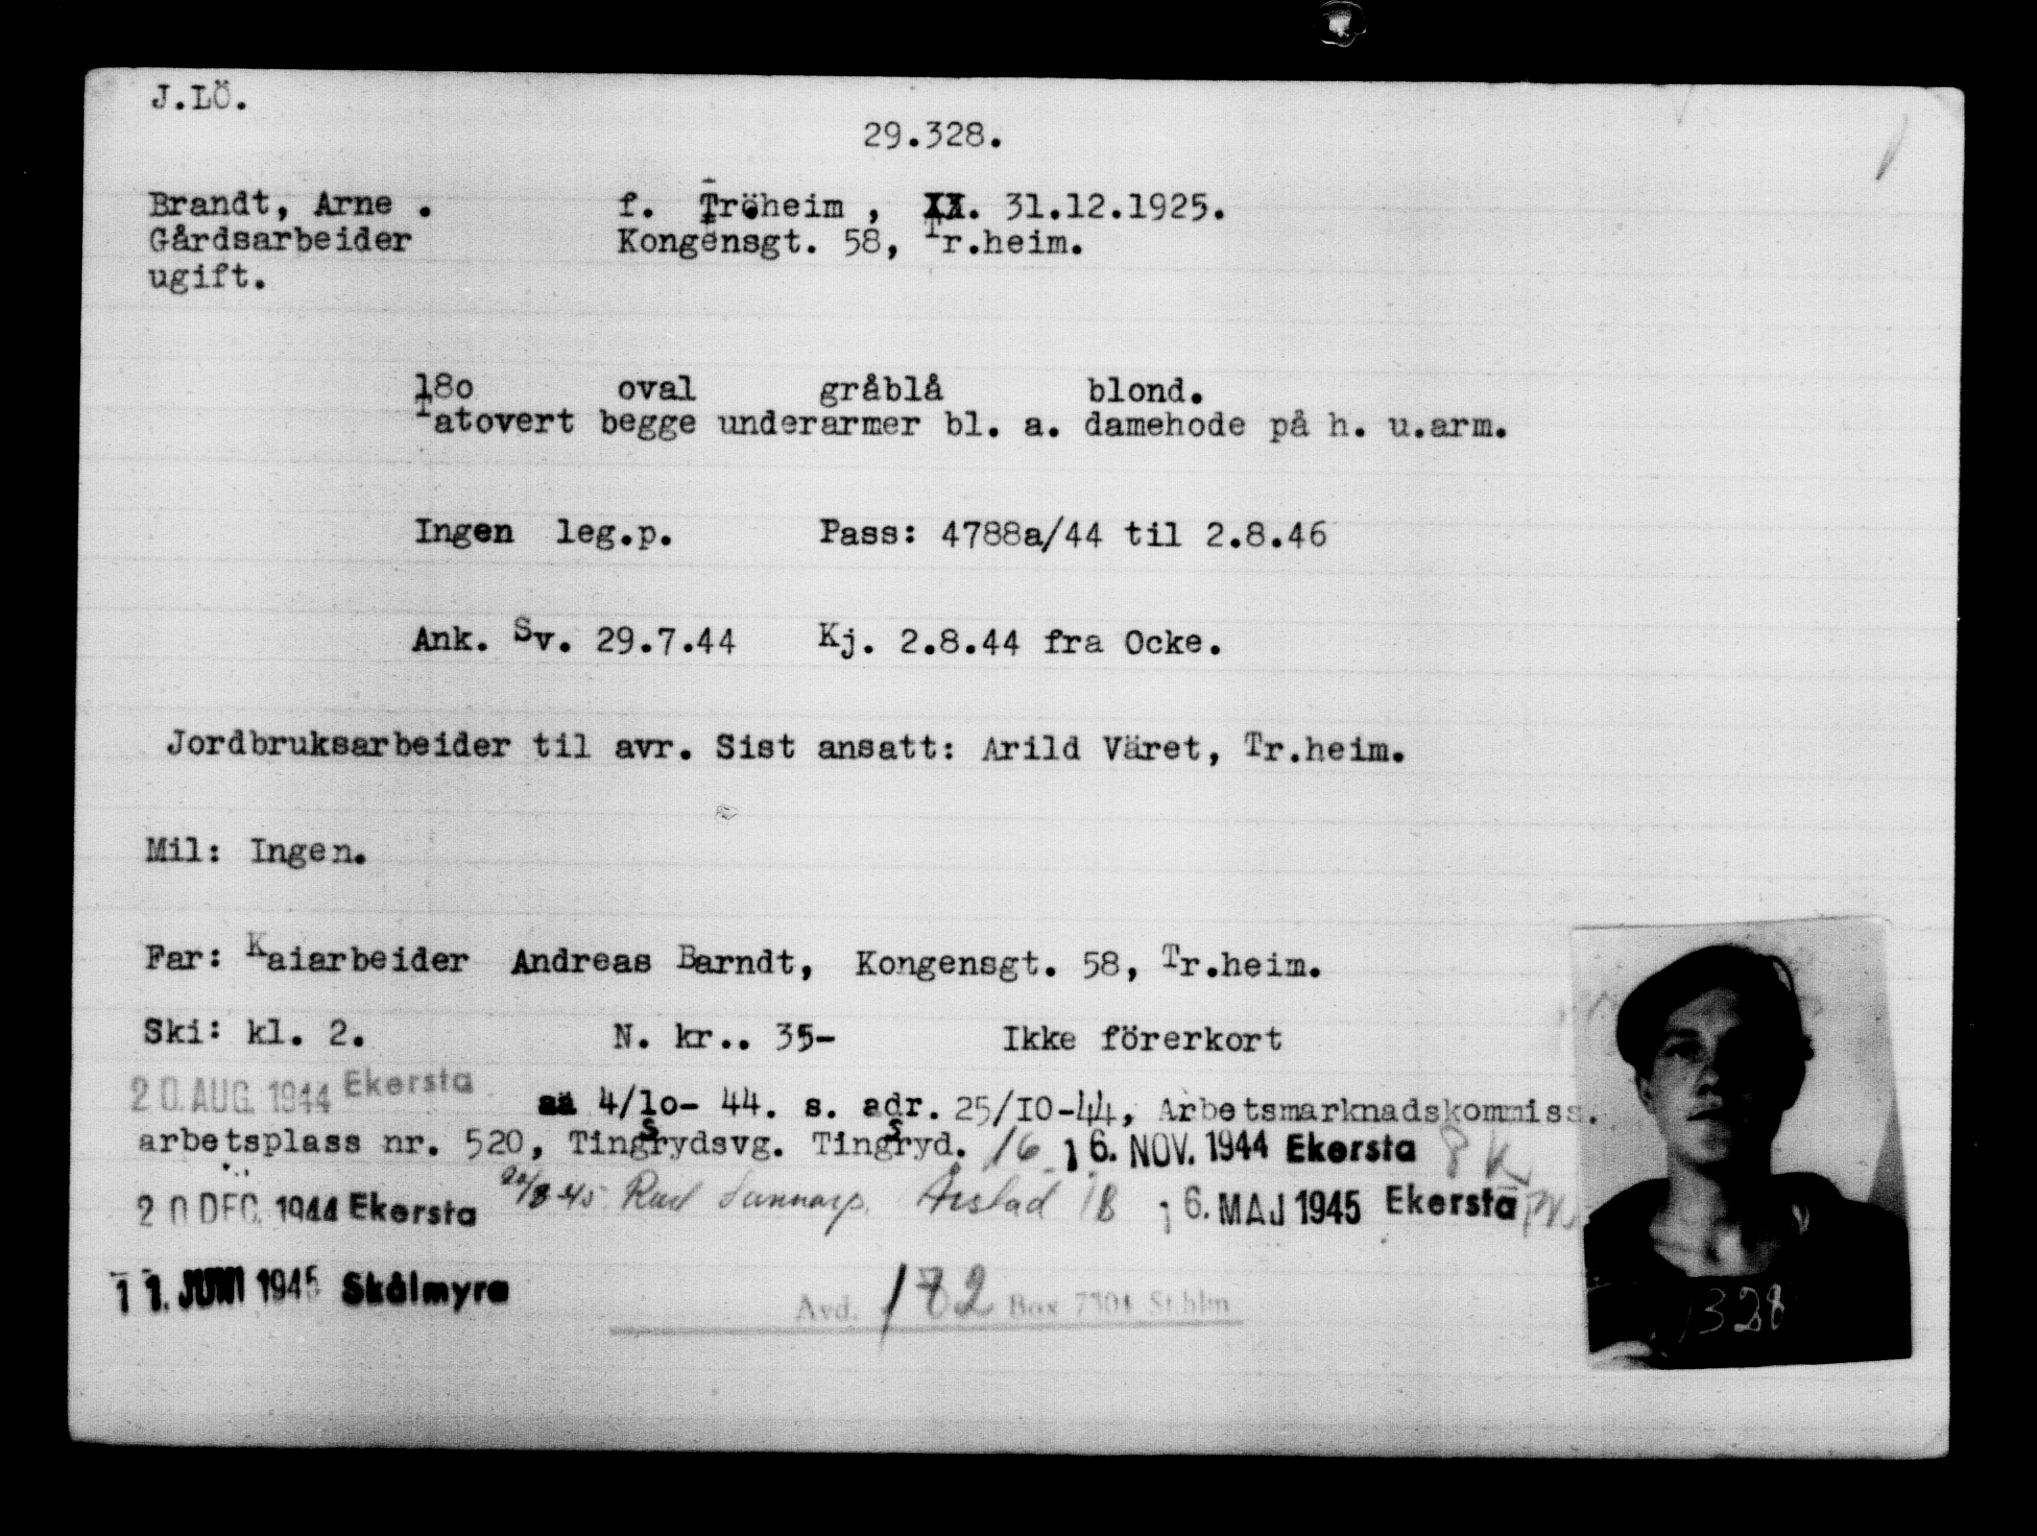 J.LÖ.
29.328.
Brandt, Arne . f. Tröheim , XX. 31.12.1925.
Gårdsarbeider Kongensgt. 58, Tr.heim.
ugift.
18o oval gråblå blond.
Tatovert begge underarmer bl. a. damehode på h. u.arm.
Ingen leg.p. Pass: 4788a/44 til 2.8.46
Ank. Sv. 29.7.44 Kj. 2.8.44 fra Ocke.
Jordbruksarbeider til avr. Sist ansatt: Arild Väret, Tr.heim.
Mil: Ingen.
Far: Kaiarbeider Andreas Barndt, Kongensgt. 58, Tr.heim.
Ski: kl. 2. N. kr.. 35- Ikke förerkort
20. AUG. 1944 Ekersta aä 4/1o- 44. s. adr. 25/IO-44, Arbetsmarknadskommiss.
arbetsplass nr. 520, Tingsrydsvg. Tingsryd. 16 16. NOV. 1944 Ekersta
20 DEC. 1944 Ekersta 20/8-45. Årstad 16. MAJ 1945 Ekersta
11. JUNI 1945 Skålmyra
Avd. 182 Box 7301 St.hlm
1328